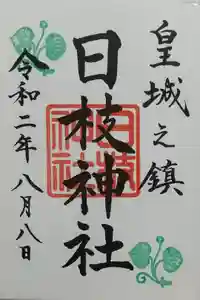 皇城之鎮
日枝神社
日枝神社
令和二年八月八日